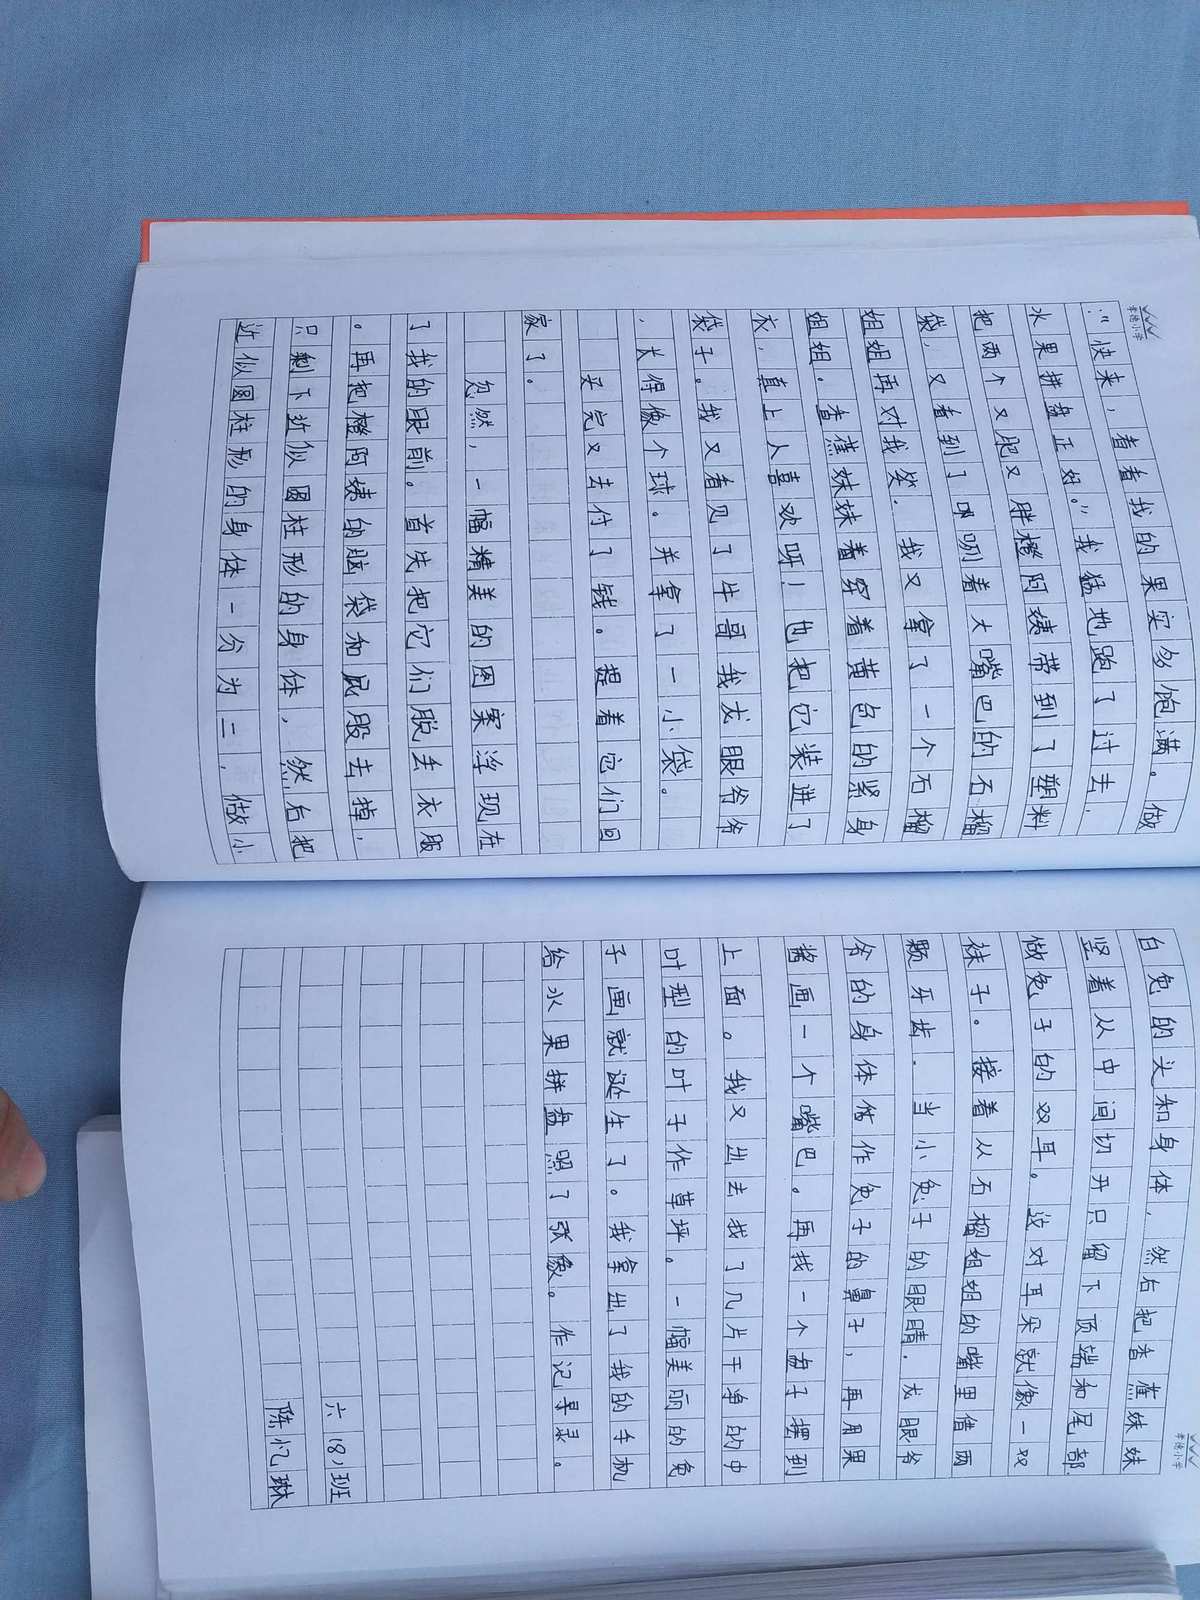 孝德小学
：“快来，看看我的果实多饱满。做
水果拼盘正好。”我猛地跑了过去，
把两个又肥又胖橙阿姨带到了塑料
袋，又看到了咧着大嘴巴的石榴
姐姐再对我笑．我又拿了一个石榴
姐姐．香蕉妹妹着穿着黄色的紧身
衣，真上人喜欢呀！也把它装进了
袋子。我又看见了牛哥我龙眼爷爷
，大得像个球。并拿了一小袋。
买完又去付了钱。提着它们回
家了．
忽然，一幅精美的图案浮现在
了我的眼前。首先把它们脱去衣服
。再把橙阿姨的脑袋和屁股去掉，
只剩下近似圆柱形的身体，然后把
近似圆柱形的身体一分为二．做小
孝德小学
白兔的头和身体，然后把香蕉妹妹
竖着从中间切开只留下顶端和尾部．
做兔子的双耳。这对耳朵就像一双
袜子。接着从石榴姐姐的嘴里借两
颗牙齿．当小兔子的眼睛．龙眼爷
爷的身体当作兔子的鼻子，再用果
酱画一个嘴巴．再找一个盘子摆到
上面。我又出去找了几片干净的中
叶型的叶子作草坪。一幅美丽的兔
子画就诞生了。我拿出了我的手机
给水果拼盘照了张像。作记录录。
六(8)班
陈忆琳